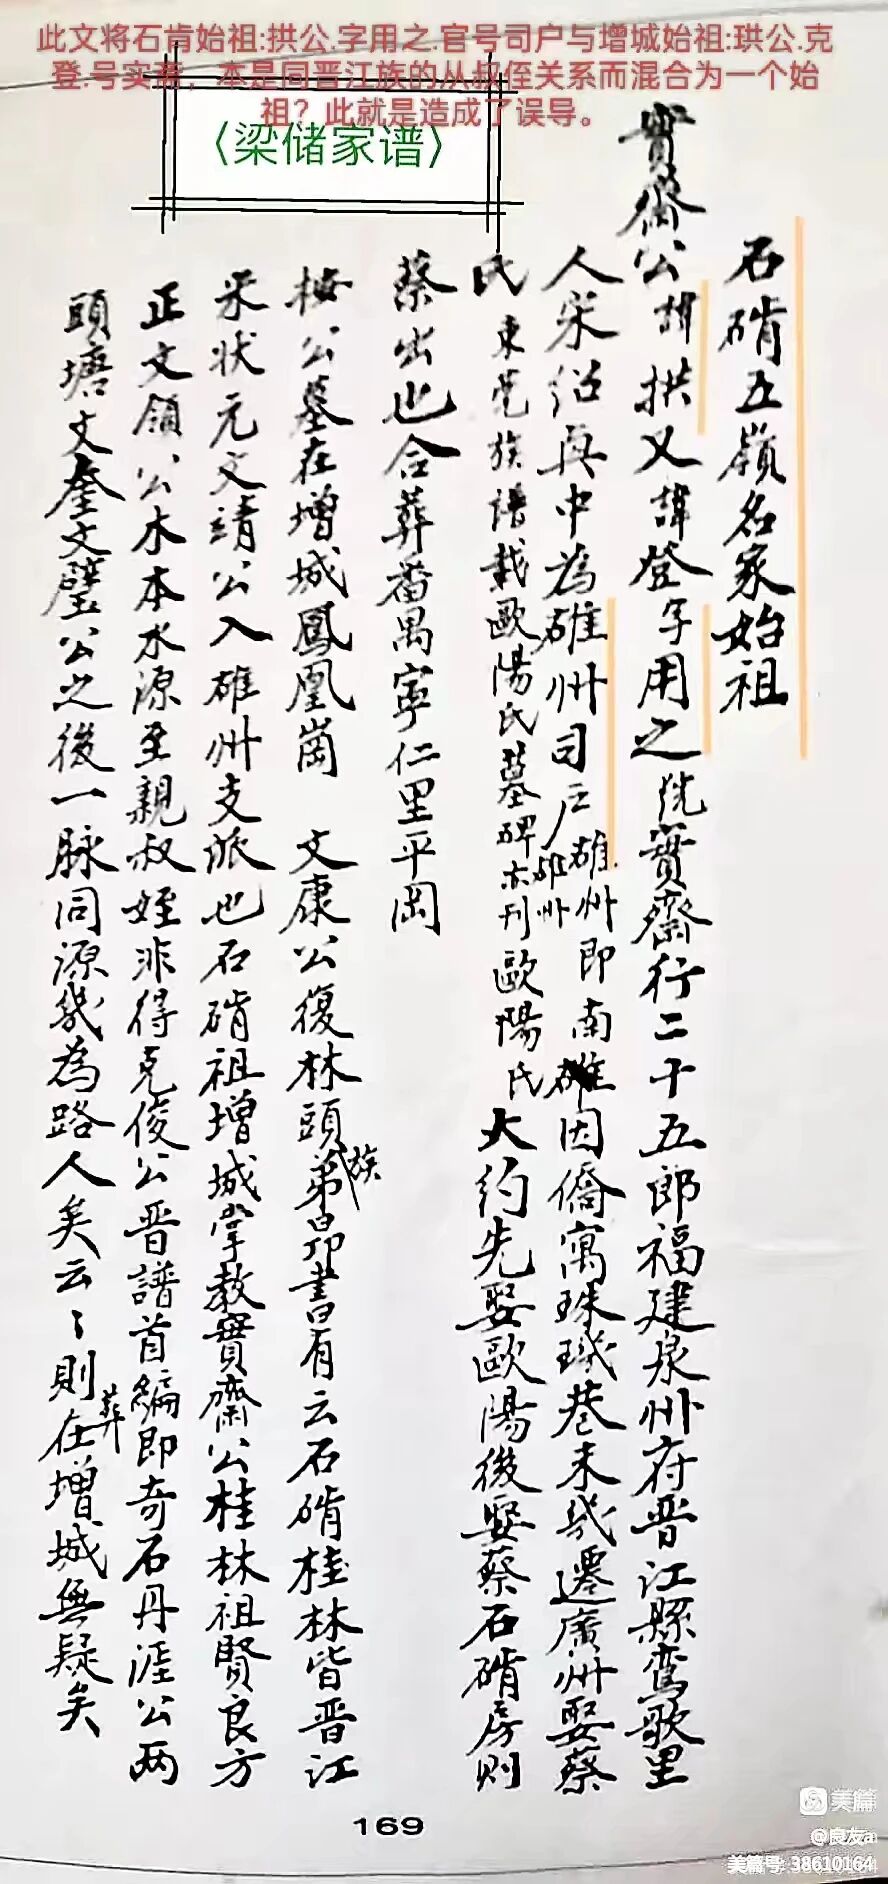 此文将石肯始祖:拱公.字用之.官号司户与增城始祖:珙公.克
登.号实斋，本是同晋江族的从叔侄关系而混合为一个始
祖？此就是造成了误导。
〈梁储家谱〉
石硝五嶺名家始祖
實齋公諱拱又諱登字用之號實齋行二十五郎福建泉州府晋江縣鸞歌里
人宋紹興中為雄州司戶雄州即南雄因僑寓珠璣巷未幾遷廣州娶蔡
氏東莞族譜載歐陽氏墓碑亦刊歐陽氏大約先娶歐陽後娶蔡石硝房則
蔡出也合葬番禺寧仁里平岡
按公墓在增城鳳凰崗 文康公復林頭族弟昴書有云石硝桂林皆晋江
宋状元文靖公入雄州支派也石硝祖增城掌教實齋公桂林祖賢良方
正文領公木本水源至親叔姪非得克俊公晋譜首編即奇石丹涯公两
頭塘文奎文璧公之後一脉同源幾為路人矣云々則葬在增城無疑矣
169
美篇
@良友a
美篇号:38610164